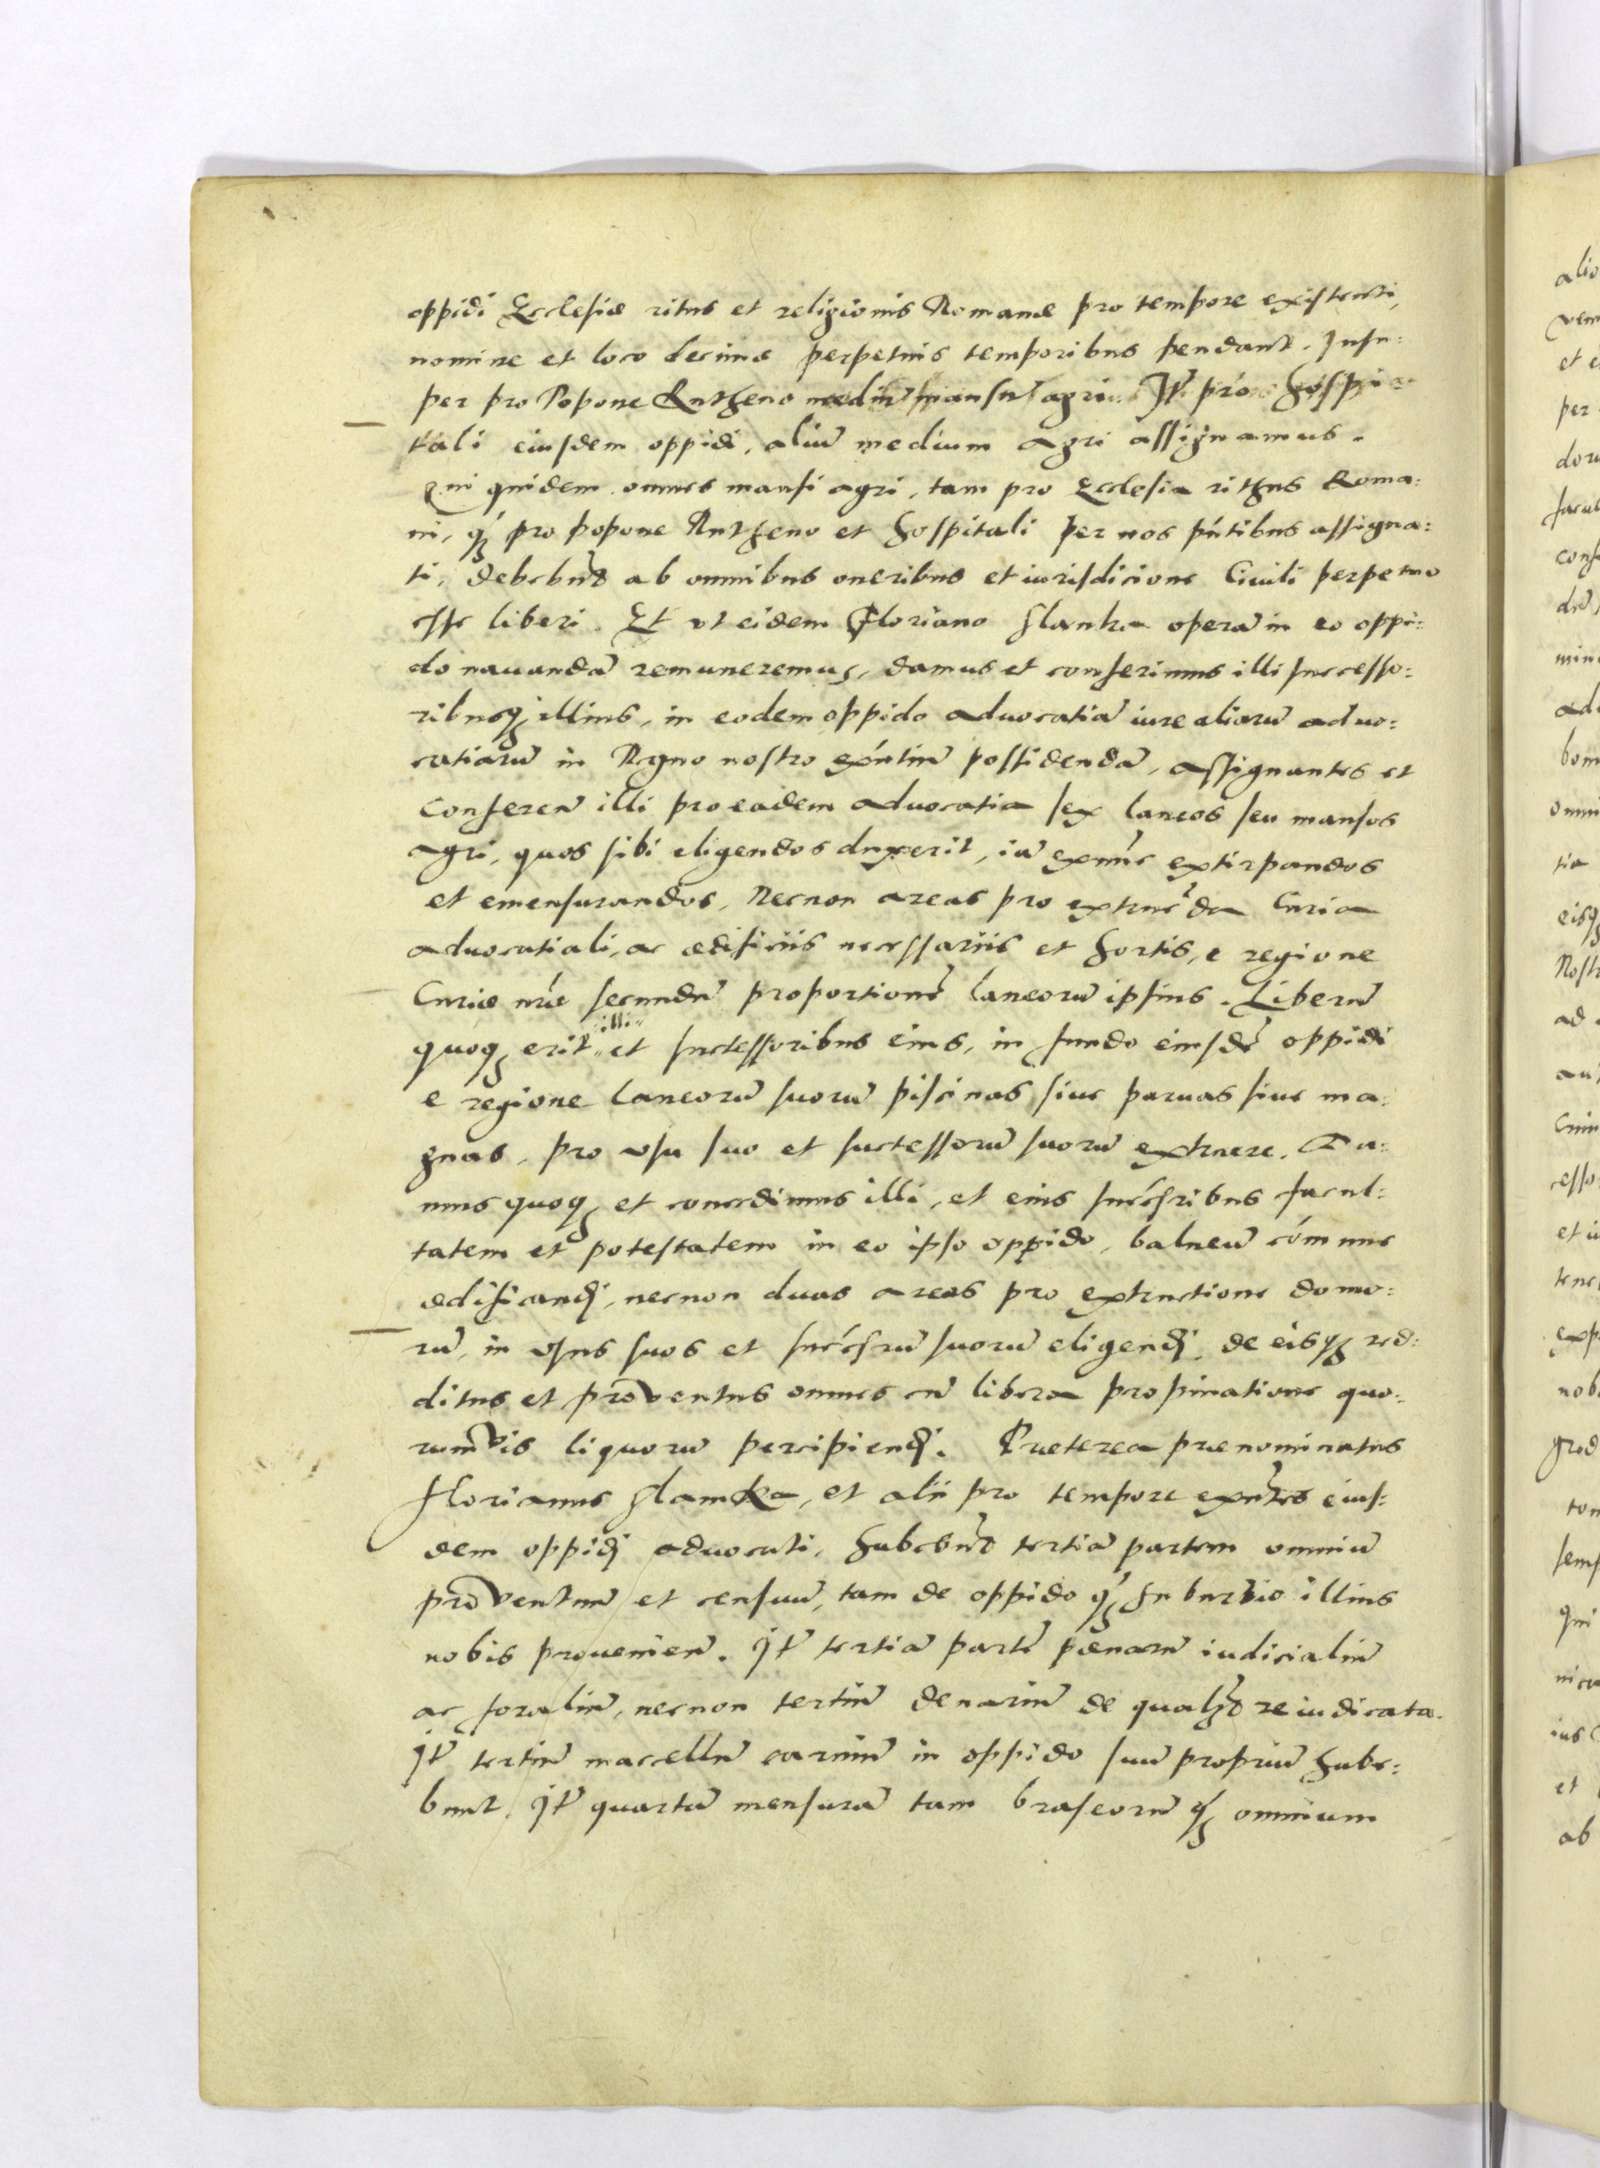 oppidi Ecclesiæ ritus et religionis Romanæ pro tempore existenti,
nomine et loco decimæ perpetuis temporibus pendant. Insu:
per pro Popone Rutheno mediũ mansũ agri. Itẽ pro Hospi:
tali eiusdem oppidi, aliũ medium agri assignamus.
Qui quidem omnes mansi agri, tam pro Ecclesia rithus Roma:
ni, q̃ȝ pro popone Rutheno et Hospitali per nos pñtibus assigna:
ti, debebũt ab omnibus oneribus et iurisdicione Ciuili perpetuo
esse liberi. Et vt eidem Floriano operã in eo oppi:
do nauandã remuneremus, damus et conferimus illi successo:
ribusqȝ illius, in eodem oppido aduocatiã iure aliarũ aduo:
catiarũ in Regno nostro exñtiũ possidendã, assignantes et
Conferen̄ illi pro eadem aduocatia sex laneos seu mansos
agri, quos sibi eligendos duxerit, iã extirpandos
et emensurandos, Necnon areas pro extruẽda Curia
aduocatiali, ac ædificiis necessariis et hortis, e regione
Curiæ nr̃æ secundũ proportionẽ laneorũ ipsius. Liberũ
quoqȝ erit illi et successoribus eius, in fundo eiusdẽ oppidi
e regione laneorũ suorũ piscinas siue paruas siue ma:
gnas, pro vsu suo et successorũ suorũ extruere. Da:
mus quoqȝ et concedimus illi, et eius succ̃ribus facul:
tatem et potestatem in eo ipso oppido, balneũ cõmune
ædificandj, necnon duas areas pro extructione domo:
rũ, in vsus suos et succ̃rũ suorũ eligendj, de eisqȝ red:
ditus et proventus omnes cũ libera propinatione quo:
rumvis liquorũ percipiendj. Præterea prænominatus
Florianus et alij pro tempore exñtes eius:
dem oppidj aduocati, habebũt tertiã partem omniũ
proventuũ et censuũ, tam de oppido q̃ȝ suburbio illius
nobis prouenien̄. Itẽ tertiã partẽ pœnarũ iudicialiũ
ac foraliũ, necnon tertiũ denariũ de qualȝt re iudicata.
Itẽ tertiũ macellũ carniũ in oppido suũ propriũ habe:
bunt. Itẽ quartã mensurã tam braseorũ q̃ȝ omnium